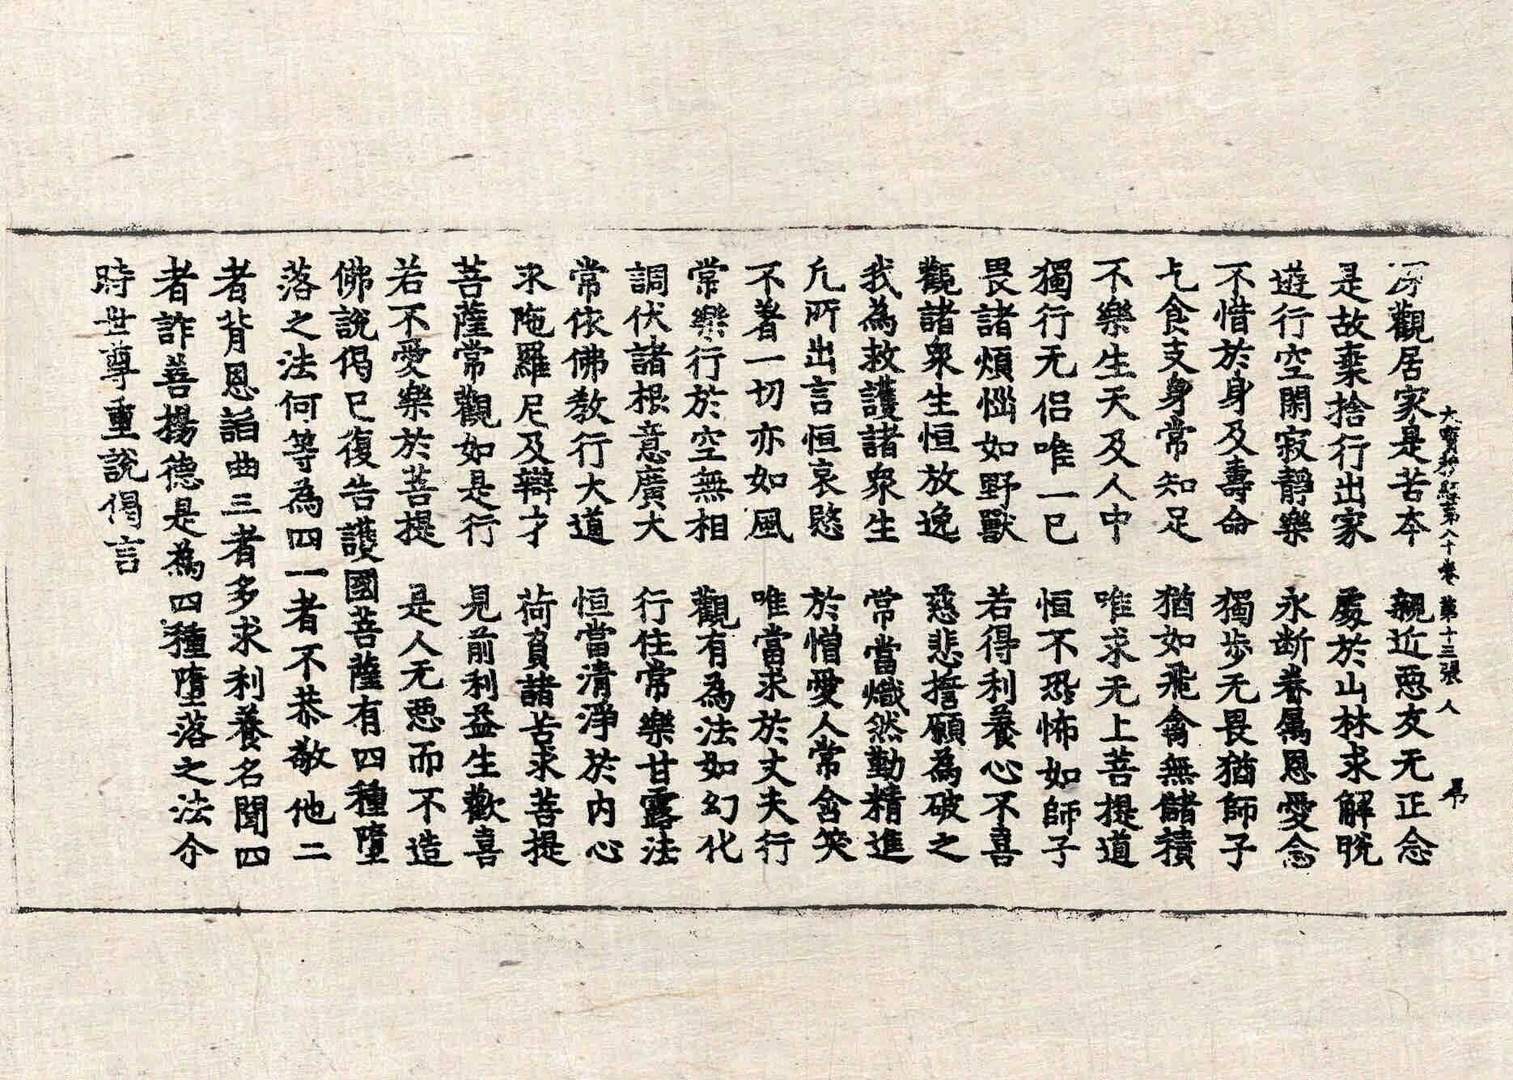 大寶積經第八十卷 第十三張 人
觀居家是苦本 親近惡友无正念
是故棄捨行出家 處於山林求解脫
遊行空閑寂靜樂 永斷眷属恩愛念
不惜於身及壽命 獨步无畏猶師子
乞食支身常知足 猶如飛禽無儲積
不樂生天及人中 唯求无上菩提道
獨行无侶唯一已 恒不恐怖如師子
畏諸煩惱如野獸 若得利養心不喜
觀諸衆生恒放逸 慈悲擔願為破之
我為救護諸衆生 常當熾然勤精進
凡所出言恒哀愍 於憎愛人常含笑
不著一切亦如風 唯當求於丈夫行
常樂行於空無相 觀有為法如幻化
調伏諸根意廣大 行住常樂甘露法
常依佛教行大道 恒當清淨於內心
求陁羅尼及辯才 荷負諸苦求菩提
菩薩常觀如是行 見前利益生歡喜
若不愛樂於菩提 是人无惡而不造
佛說偈已復告護國菩薩有四種墮
落之法何等為四一者不恭敬他二
者背恩諂曲三者多求利養名聞四
者詐善揚德是為四種墮落之法尒
時世尊重說偈言